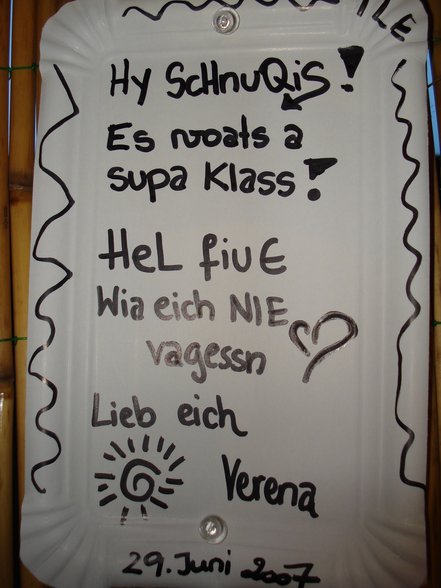 Hy ScHnuQiS!
Es woats a
supa Klass!
HeL fiuE
Wia eich NIE
vagessn
Lieb eich
Verena
29. Juni 2007